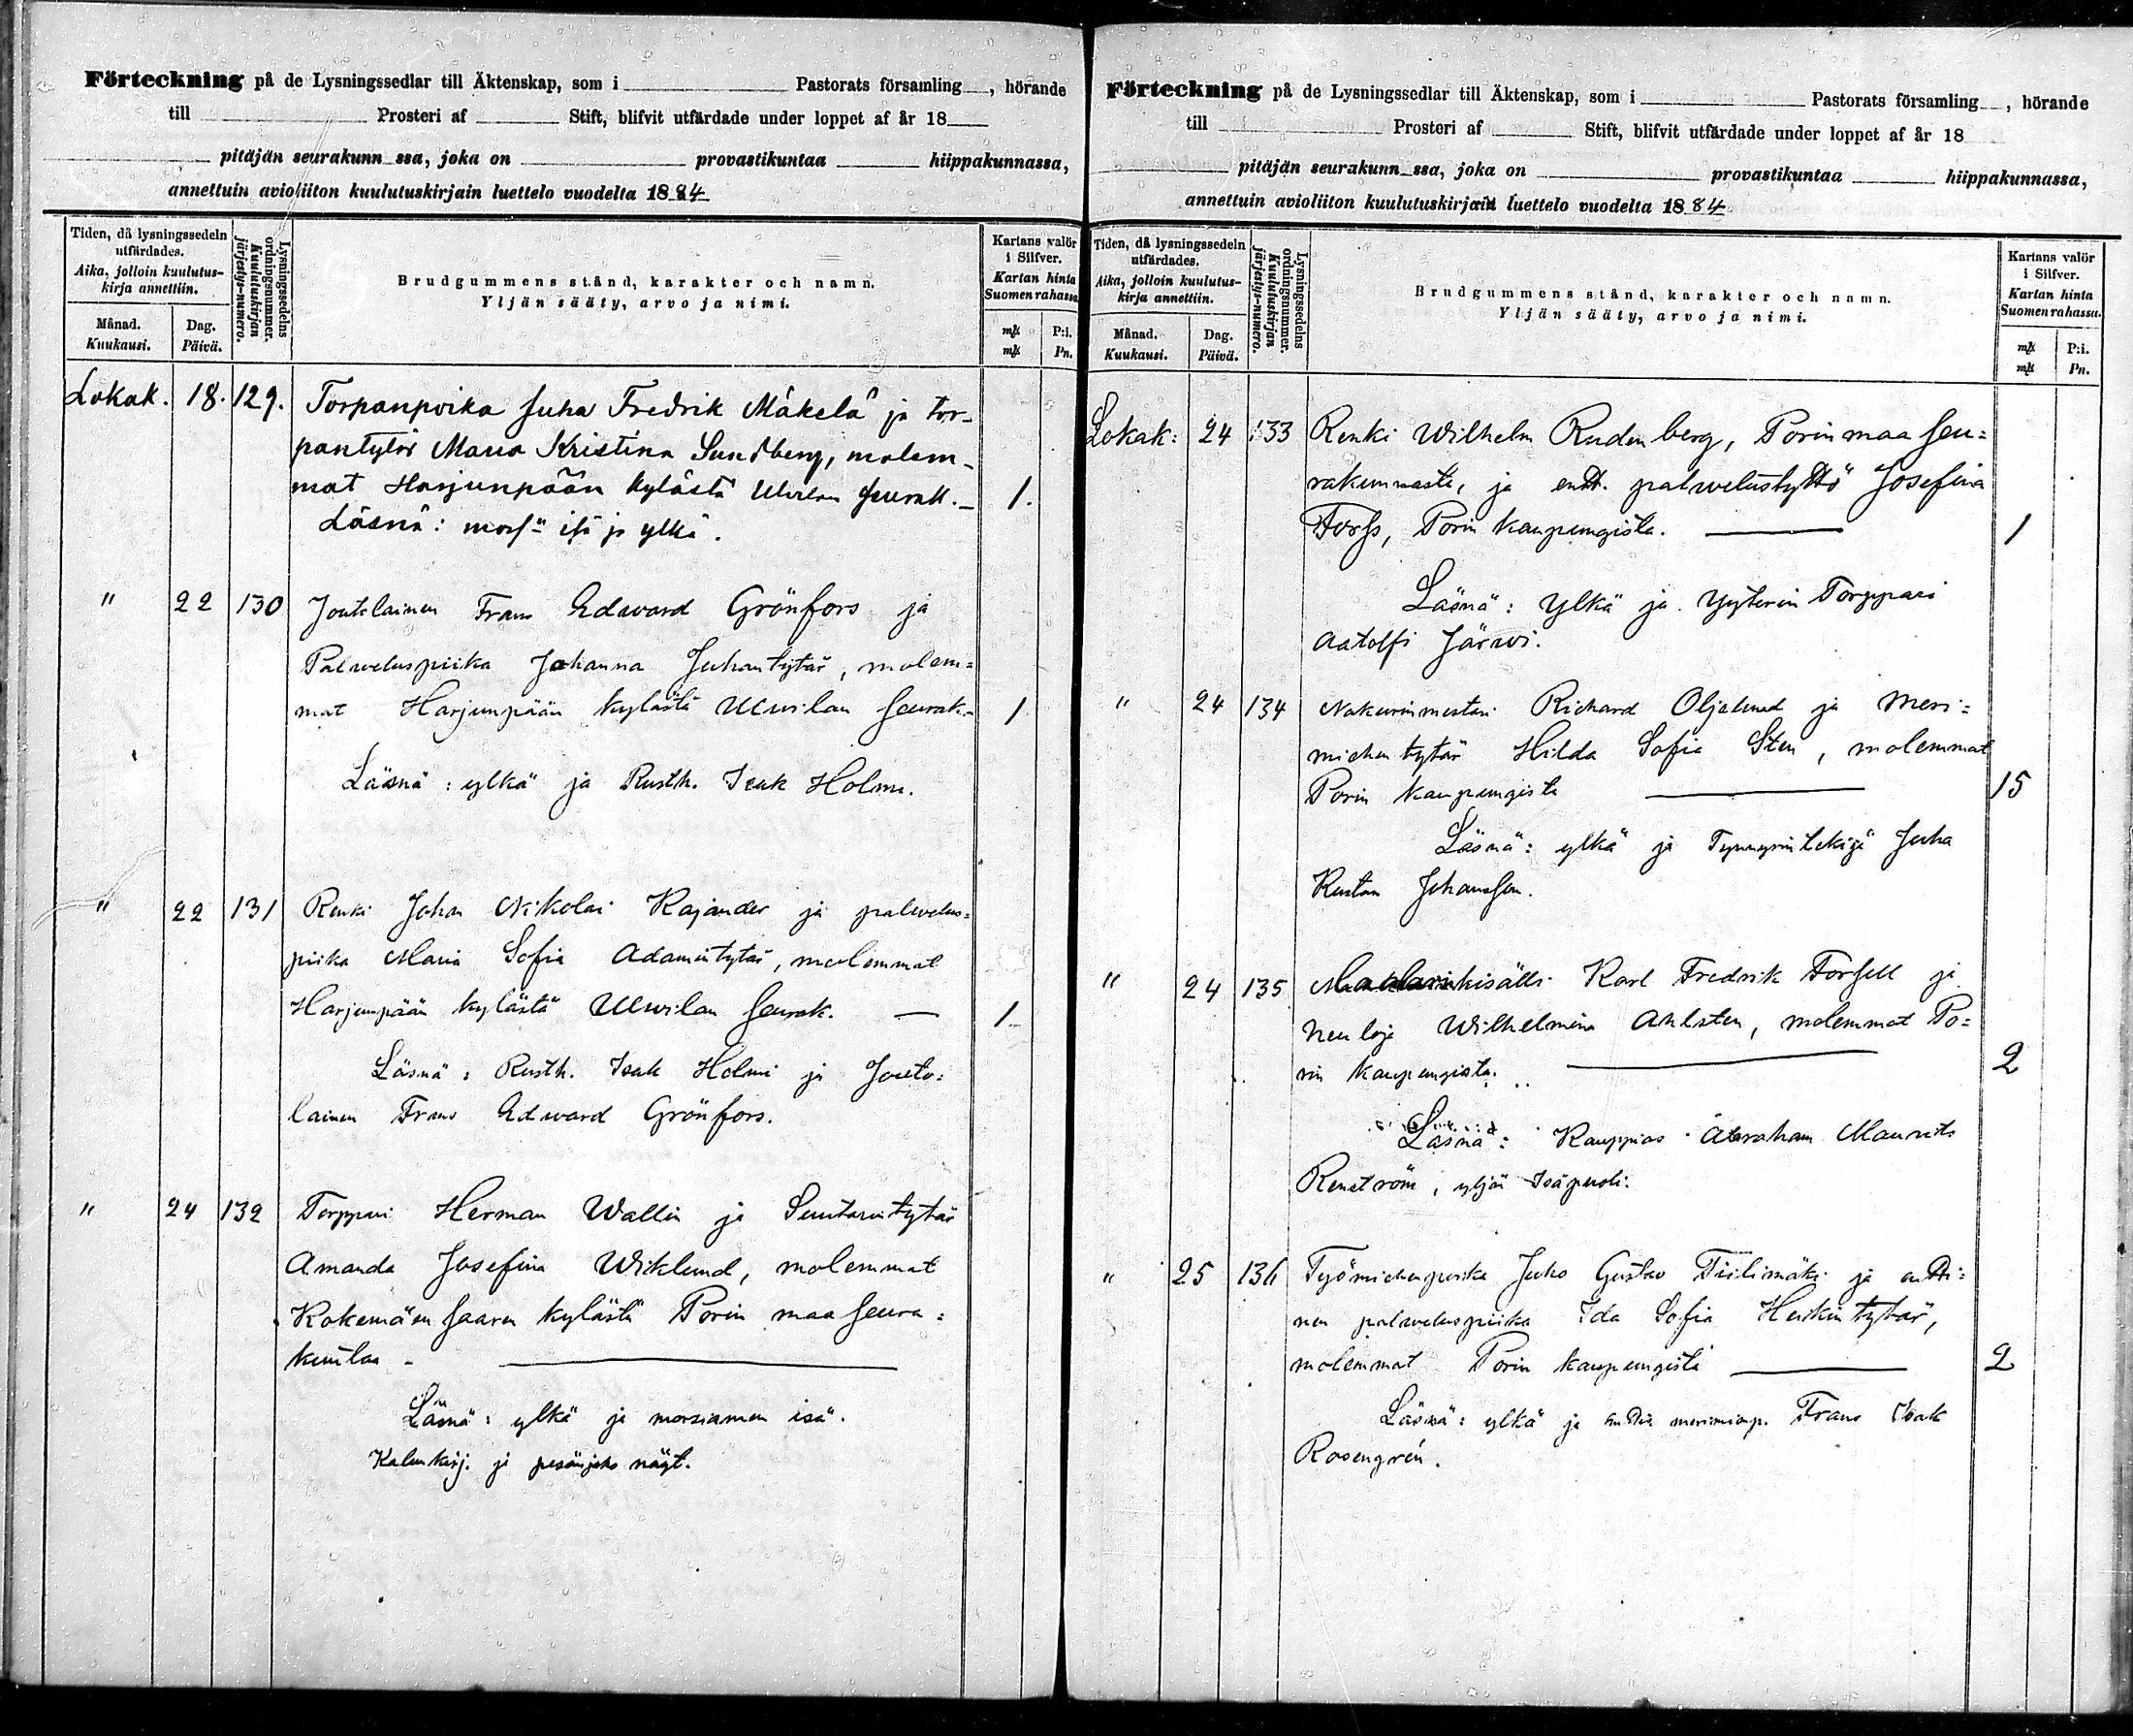 Förteckning på de Lysningssedlar till Äktenskap, som i Pastorats församling , hörande
till Prosteri af Stift, blifvit utfärdade under loppet af år 18
pitäjän seurakunn ssa, joka on provastikuntaa hiippakunnassa,
annettuin avioliiton kuulutuskirjain luettelo vuodelta 1884
Tiden, då lysningssedeln
utfärdades.
Aika, jolloin kuulutus-
kirja annettiin.
Månad.
Kuukausi.
Dag.
Päivä.
Lysningssedelns
ordningsnummer.
Kuulutuskirjan
järjestys-numero.
Brudgummens stånd, karakter och namn.
Yljän sääty, arvo ja nimi.
Kartans valör
i Silfver.
Kartan hinta
Suomen rahassa.
mk P:i.
mk Pn.
Lokak. 18. 129. Torpanpoika Juha Fredrik Mäkelä ja tor-
pantytär Maria Kristina Sundberg, molem-
mat Harjunpään kylästä Ulvilan seurak. - 1.
Läsnä: isä ja ylkä.
" 22 130 Joutolainen Frans Edward Grönfors ja
Palveluspiika Johanna Juhantytär, molem=
mat Harjunpään kylästä Ulwilan seurak. 1
Läsnä: ylkä ja Rusth. Isak Holmi.
" 22 131 Renki Johan Nikolai Kajander ja palvelus=
piika Maria Sofia Adamintytär, molemmat
Harjunpään kylästä Ulwilan seurak. — 1
Läsnä: Rusth. Isak Holmi ja Jouto=
lainen Frans Edward Grönfors.
" 24 132 Torppari Herman Wallin ja Suutarintytär
Amanda Josefina Wiklund, molemmat
Kokemäensaaren kylästä Porin maaseura=
kuntaa -
Läsnä: ylkä ja morsiamen isä.
ja näyt.
Förteckning på de Lysningssedlar till Äktenskap, som i Pastorats församling , hörande
till Prosteri af Stift, blifvit utfärdade under loppet af år 18
pitäjän seurakunn ssa, joka on provastikuntaa hiippakunnassa,
annettuin avioliiton kuulutuskirjain luettelo vuodelta 1884
Tiden, då lysningssedeln
utfärdades.
Aika, jolloin kuulutus-
kirja annettiin.
Månad.
Kuukausi.
Dag.
Päivä.
Lysningssedelns
ordningsnummer.
Kuulutuskirjan
järjestys-numero.
Brudgummens stånd, karakter och namn.
Yljän sääty, arvo ja nimi.
Kartans valör
i Silfver.
Kartan hinta
Suomen rahassa.
mk P:i.
mk Pn.
Lokak: 24 133 Renki Wilhelm Rudenberg, Porin maa seu=
rakunnasta, ja entt. palwelustyttö Josefina
Forss, Porin kaupungista. — 1
Läsnä: Ylkä ja Yyterin Torppari
Aatolfi Järwi.
" 24 134 Nahkurinmestari Richard Oljelund ja Meri=
miehentytär Hilda Sofia Sten, molemmat
Porin kaupungista — 15
Läsnä: ylkä ja Tynnyrintekijä Juha
Kustan Johansson.
" 24 135 Maalarinkisälli Karl Fredrik Forsell ja
Neuloja Wilhelmina Ahlsten, molemmat Po=
rin kaupungista. — 2
Läsnä: Kauppias Abraham Maurits
Renström, yljän Isäpuoli.
" 25 136 Työmiehenpoika Juho Gustav Tiilimäki ja entti=
nen palveluspiika Ida Sofia Heikintytär,
molemmat Porin kaupungista — 2
Läsnä: ylkä ja Frans Isak
Rosengrén.